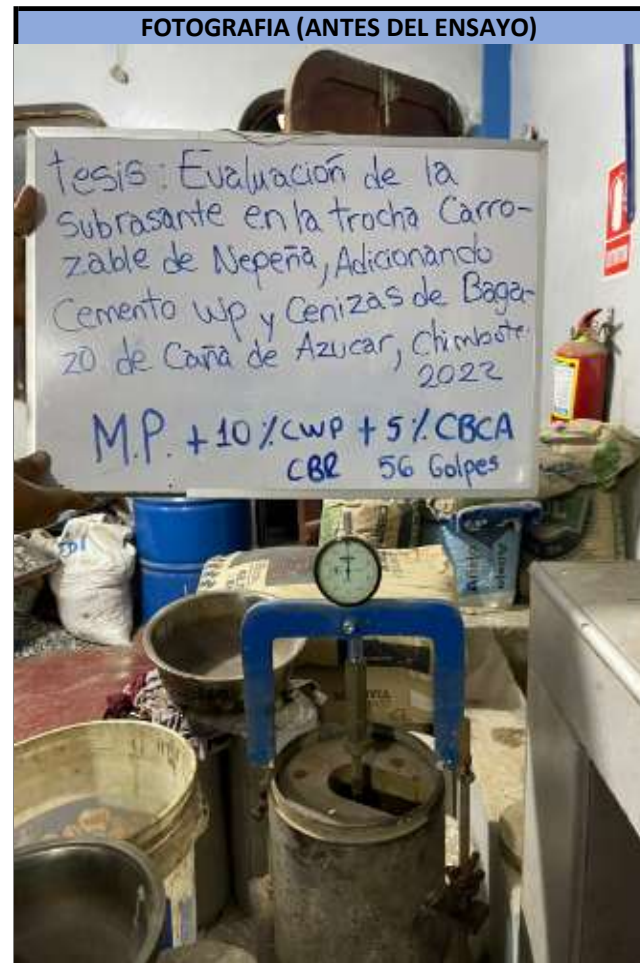 FOTOGRAFIA (ANTES DEL ENSAYO)
Tesis: Evaluación de la
Subrasante en la trocha Carro-
zable de Nepeña, Adicionando
Cemento Wp y Cenizas de Baga-
zo de Caña de Azucar, Chimbote
2022
M.P. + 10 % CWP + 5 % CBCA
CBR 56 Golpes